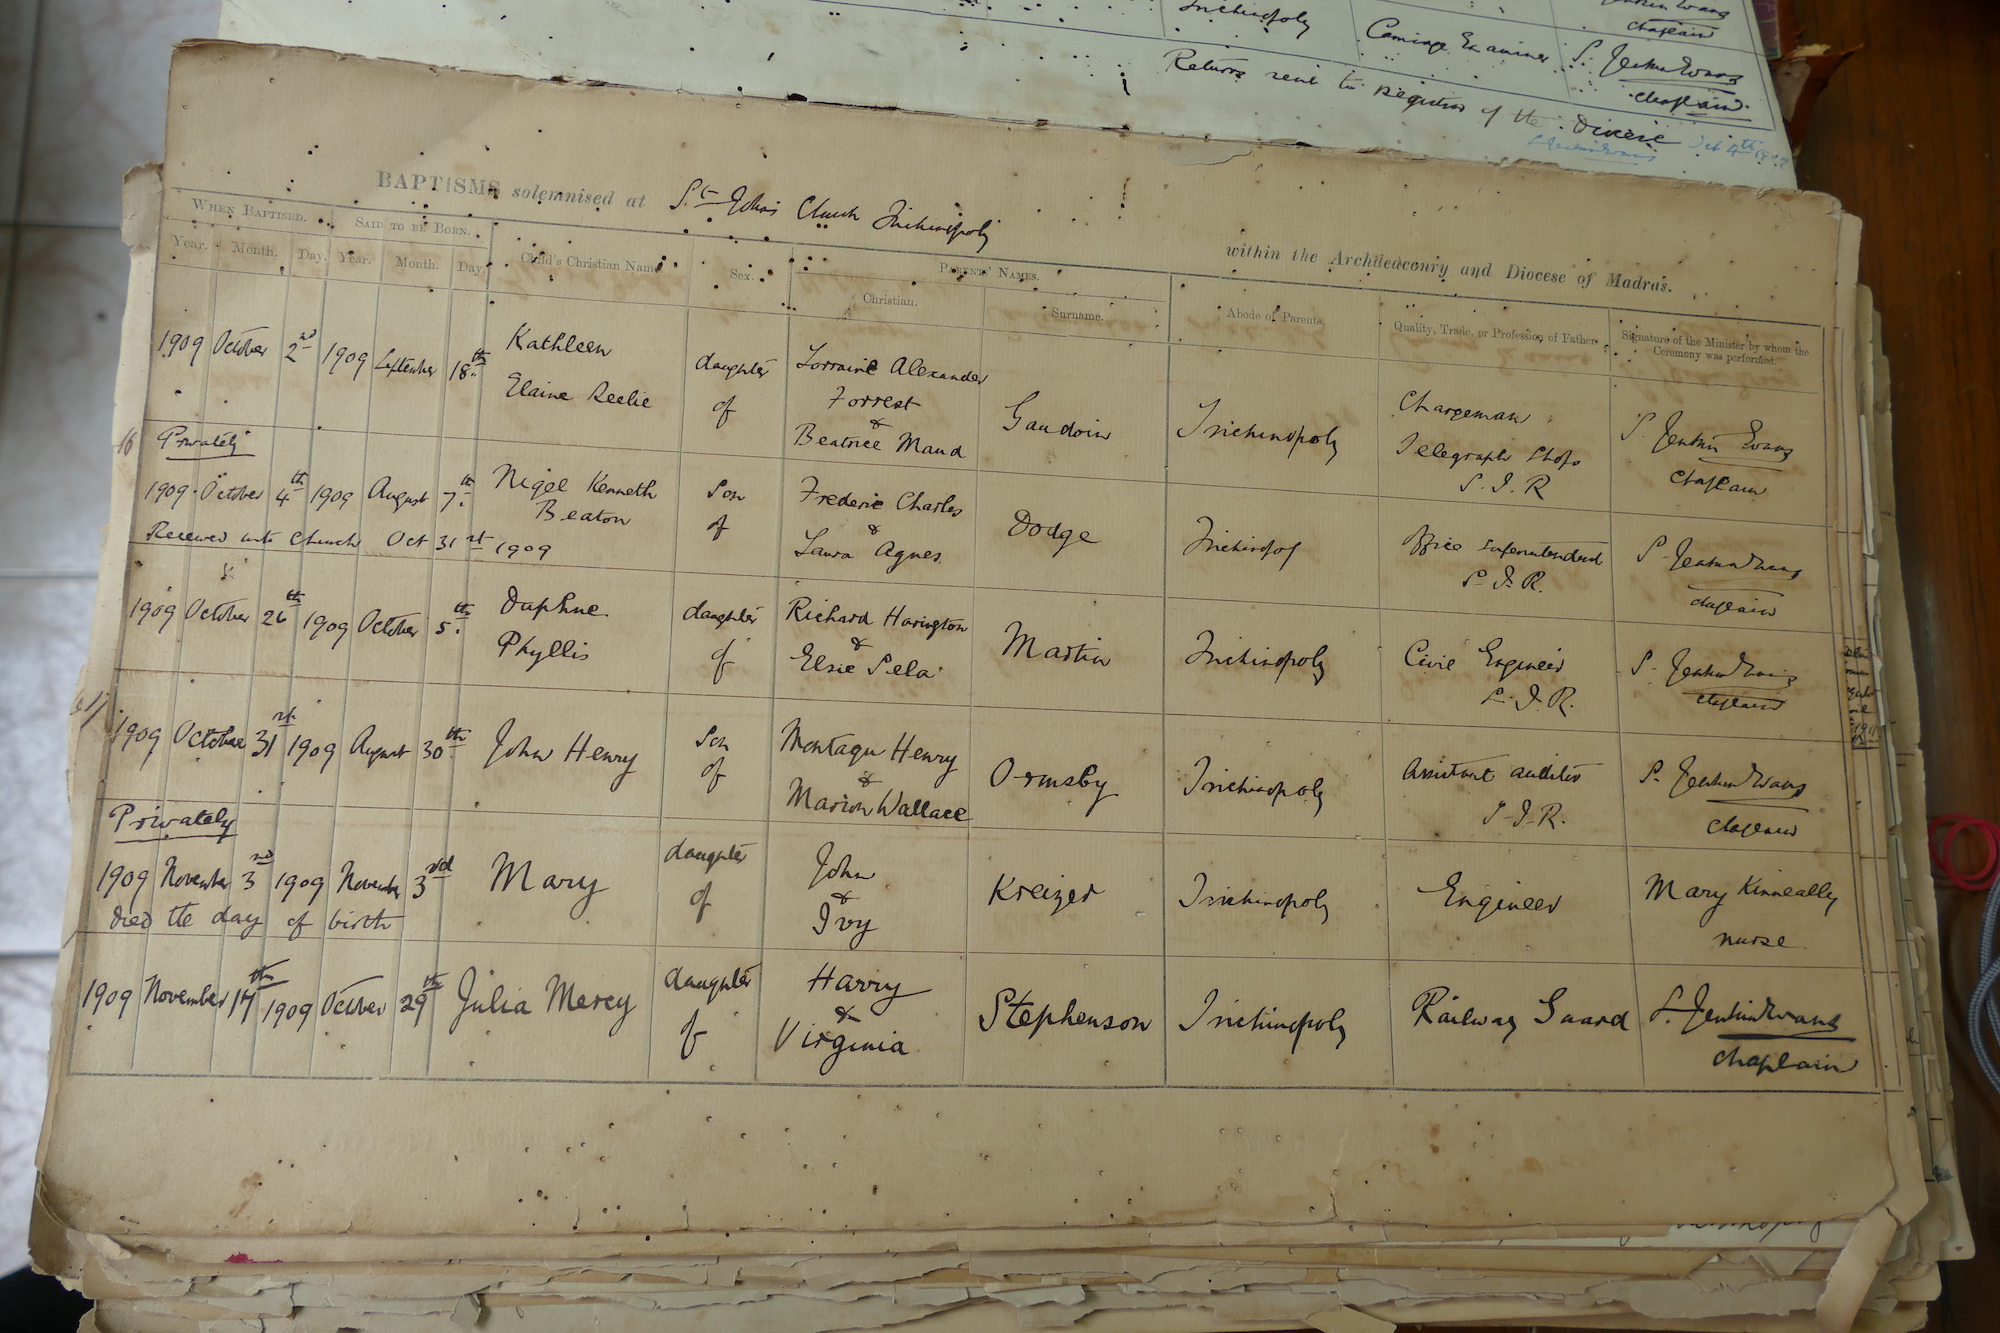 Trichinopoly
chaplain
S. Jenkin Evans
chaplain.
Returns sent to Registrar of the Diocese Oct 4th
BAPTISMS solemnised at St John's Church Trichinopoly within the Archdeaconry and Diocese of Madras.
WHEN BAPTISED. SAID TO BE BORN. Child's Christian Name. Sex. PARENTS' NAMES. Abode of Parents. Quality, Trade, or Profession of Father. Signature of the Minister by whom the Ceremony was performed.
Year. Month. Day. Year. Month. Day. Christian. Surname.
1909 October 2nd 1909 September 18th Kathleen daughter Lorraine Alexander Chargeman
Elaine of Forrest Gaudoin Trichinopoly Telegraph Shops S. Jenkin Evans
& S. I. R chaplain
Beatrice Maud
16 Privately
1909 October 4th 1909 August 7th Nigel Kenneth Son Frederic Charles Dodge Office Superintendent S. Jenkin Evans
Beaton of & S. I. R. chaplain
Received into Church Oct 31st 1909 Laura Agnes
1909 October 26th 1909 October 5th Daphne daughter Richard Harington Martin Trichinopoly Civil Engineer S. Jenkin Evans
Phyllis of & S. I. R. chaplain
Elsie
1909 October 31st 1909 August 30th John Henry Son Montagu Henry Ormsby Trichinopoly Assistant Auditor S. Jenkin Evans
of & S. I. R. chaplain
Marion Wallace
Privately
1909 November 3rd 1909 November 3rd Mary daughter John Kreizer Trichinopoly Engineer Mary Kinneally
died the day of birth of & nurse
Ivy
1909 November 14th 1909 October 29th Julia Mercy daughter Harry Stephenson Trichinopoly Railway Guard S. Jenkin Evans
of & chaplain
Virginia